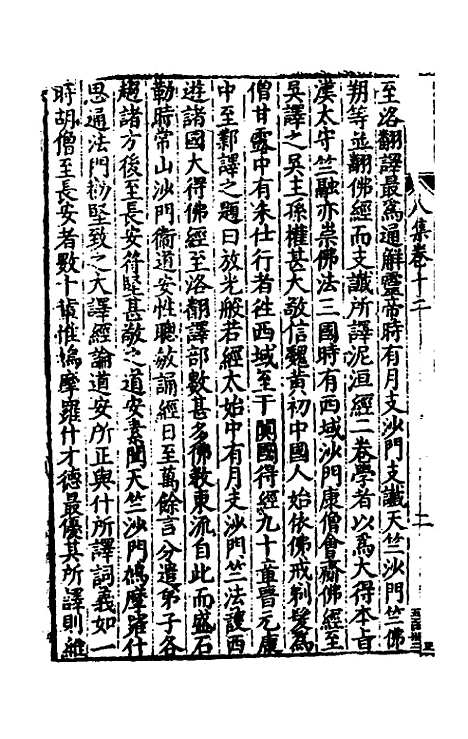 八集卷十二
二
至洛翻譯最爲通解靈帝時有月支沙門支讖天竺沙門竺佛
朔等並翻佛經而支讖所譯泥洹經二卷學者以爲大得本旨
漢太守竺融亦崇佛法三國時有西域沙門康僧會齎佛經至
吳譯之吳主孫權甚大敬信魏黃初中國人始依佛戒剃髮爲
僧甘露中有朱仕行者往西域至于闐國得經九十章晉元康
中至鄴譯之題曰放光般若經太始中有月支沙門竺法護西
遊諸國大得佛經至洛翻譯部數甚多佛教東流自此而盛石
勒時常山沙門衞道安性聰敏誦經日至萬餘言分遣弟子各
趨諸方後至長安符堅甚敬之道安素聞天竺沙門鳩摩羅什
思通法門勸堅致之大譯經論道安所正與什所譯詞義如一
時胡僧至長安者數十輩惟鳩摩羅什才德最優其所譯則維